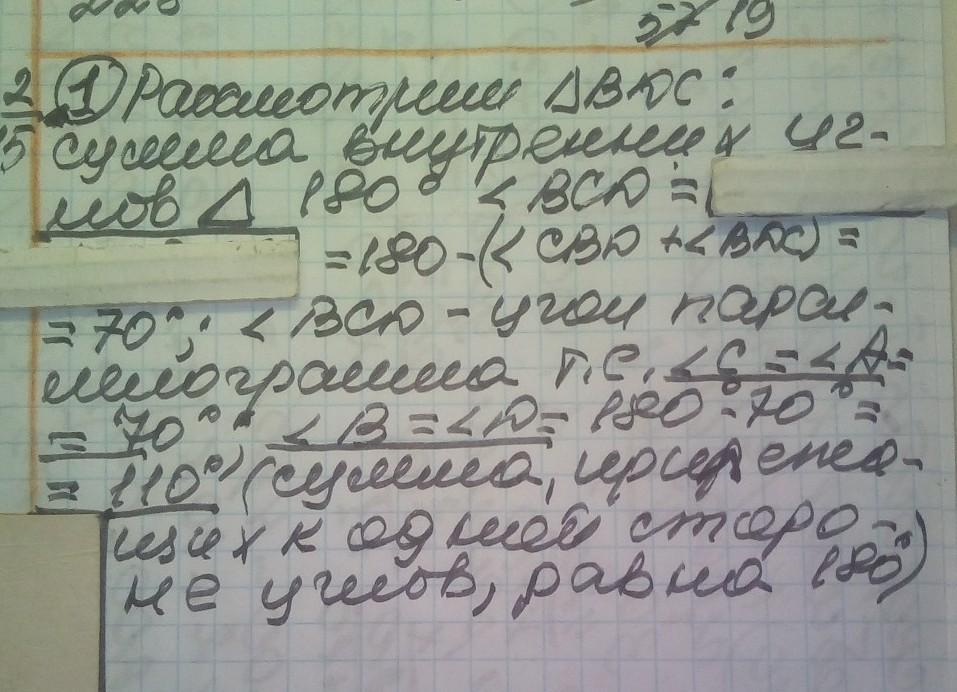 57 19
2 1 Рассмотрим ΔBDC:
15 сумма внутренних уг-
лов Δ 180° <BCD =
= 180 - (< CBD + < BDC) =
= 70°; < BCD - угол парал-
лелограмма т.е. <C = <A =
= 70°; <B = <D = 180° - 70° =
= 110° (сумма, прилежа-
щих к одной сторо-
не углов, равна 180°)